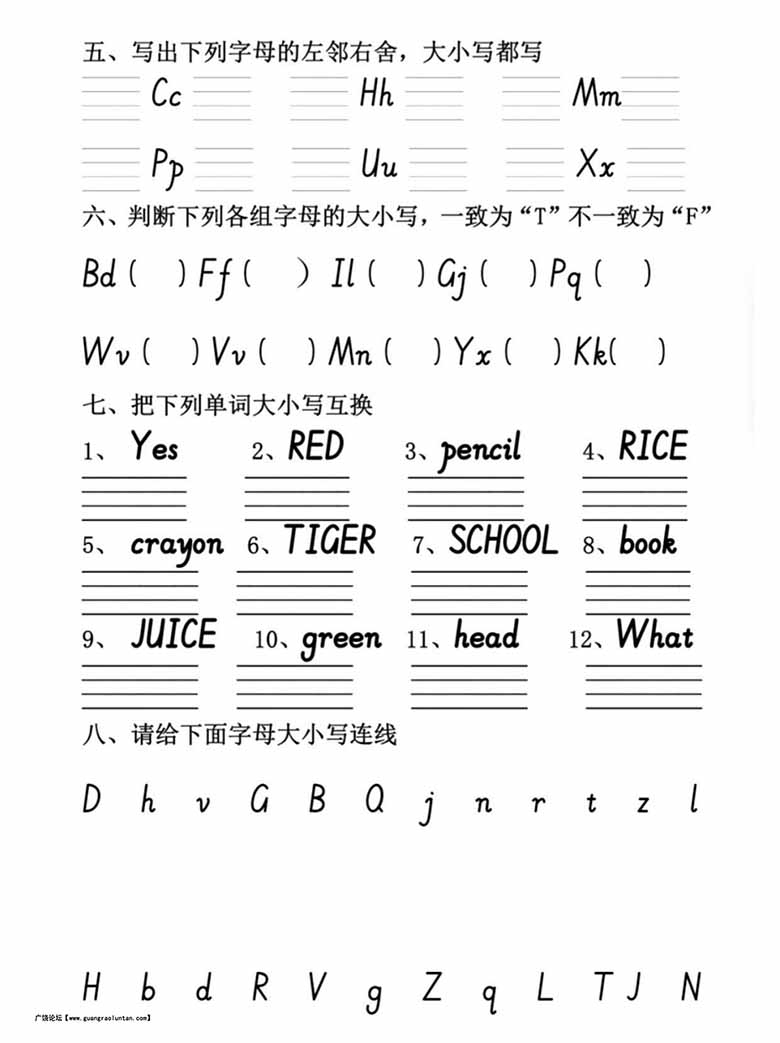 五、写出下列字母的左邻右舍，大小写都写
Cc Hh Mm
Pp Uu Xx
六、判断下列各组字母的大小写，一致为“T”不一致为“F”
Bd ( ) Ff ( ) Il ( ) Gj ( ) Pq ( )
Wv ( ) Vv ( ) Mn ( ) Yx ( ) Kk( )
七、把下列单词大小写互换
1、 Yes 2、RED 3、pencil 4、RICE
5、 crayon 6、TIGER 7、SCHOOL 8、book
9、 JUICE 10、green 11、head 12、What
八、请给下面字母大小写连线
D h v G B Q j n r t z l
H b d R V g Z q L T J N
广饶论坛【www.guangraoluntan.com】